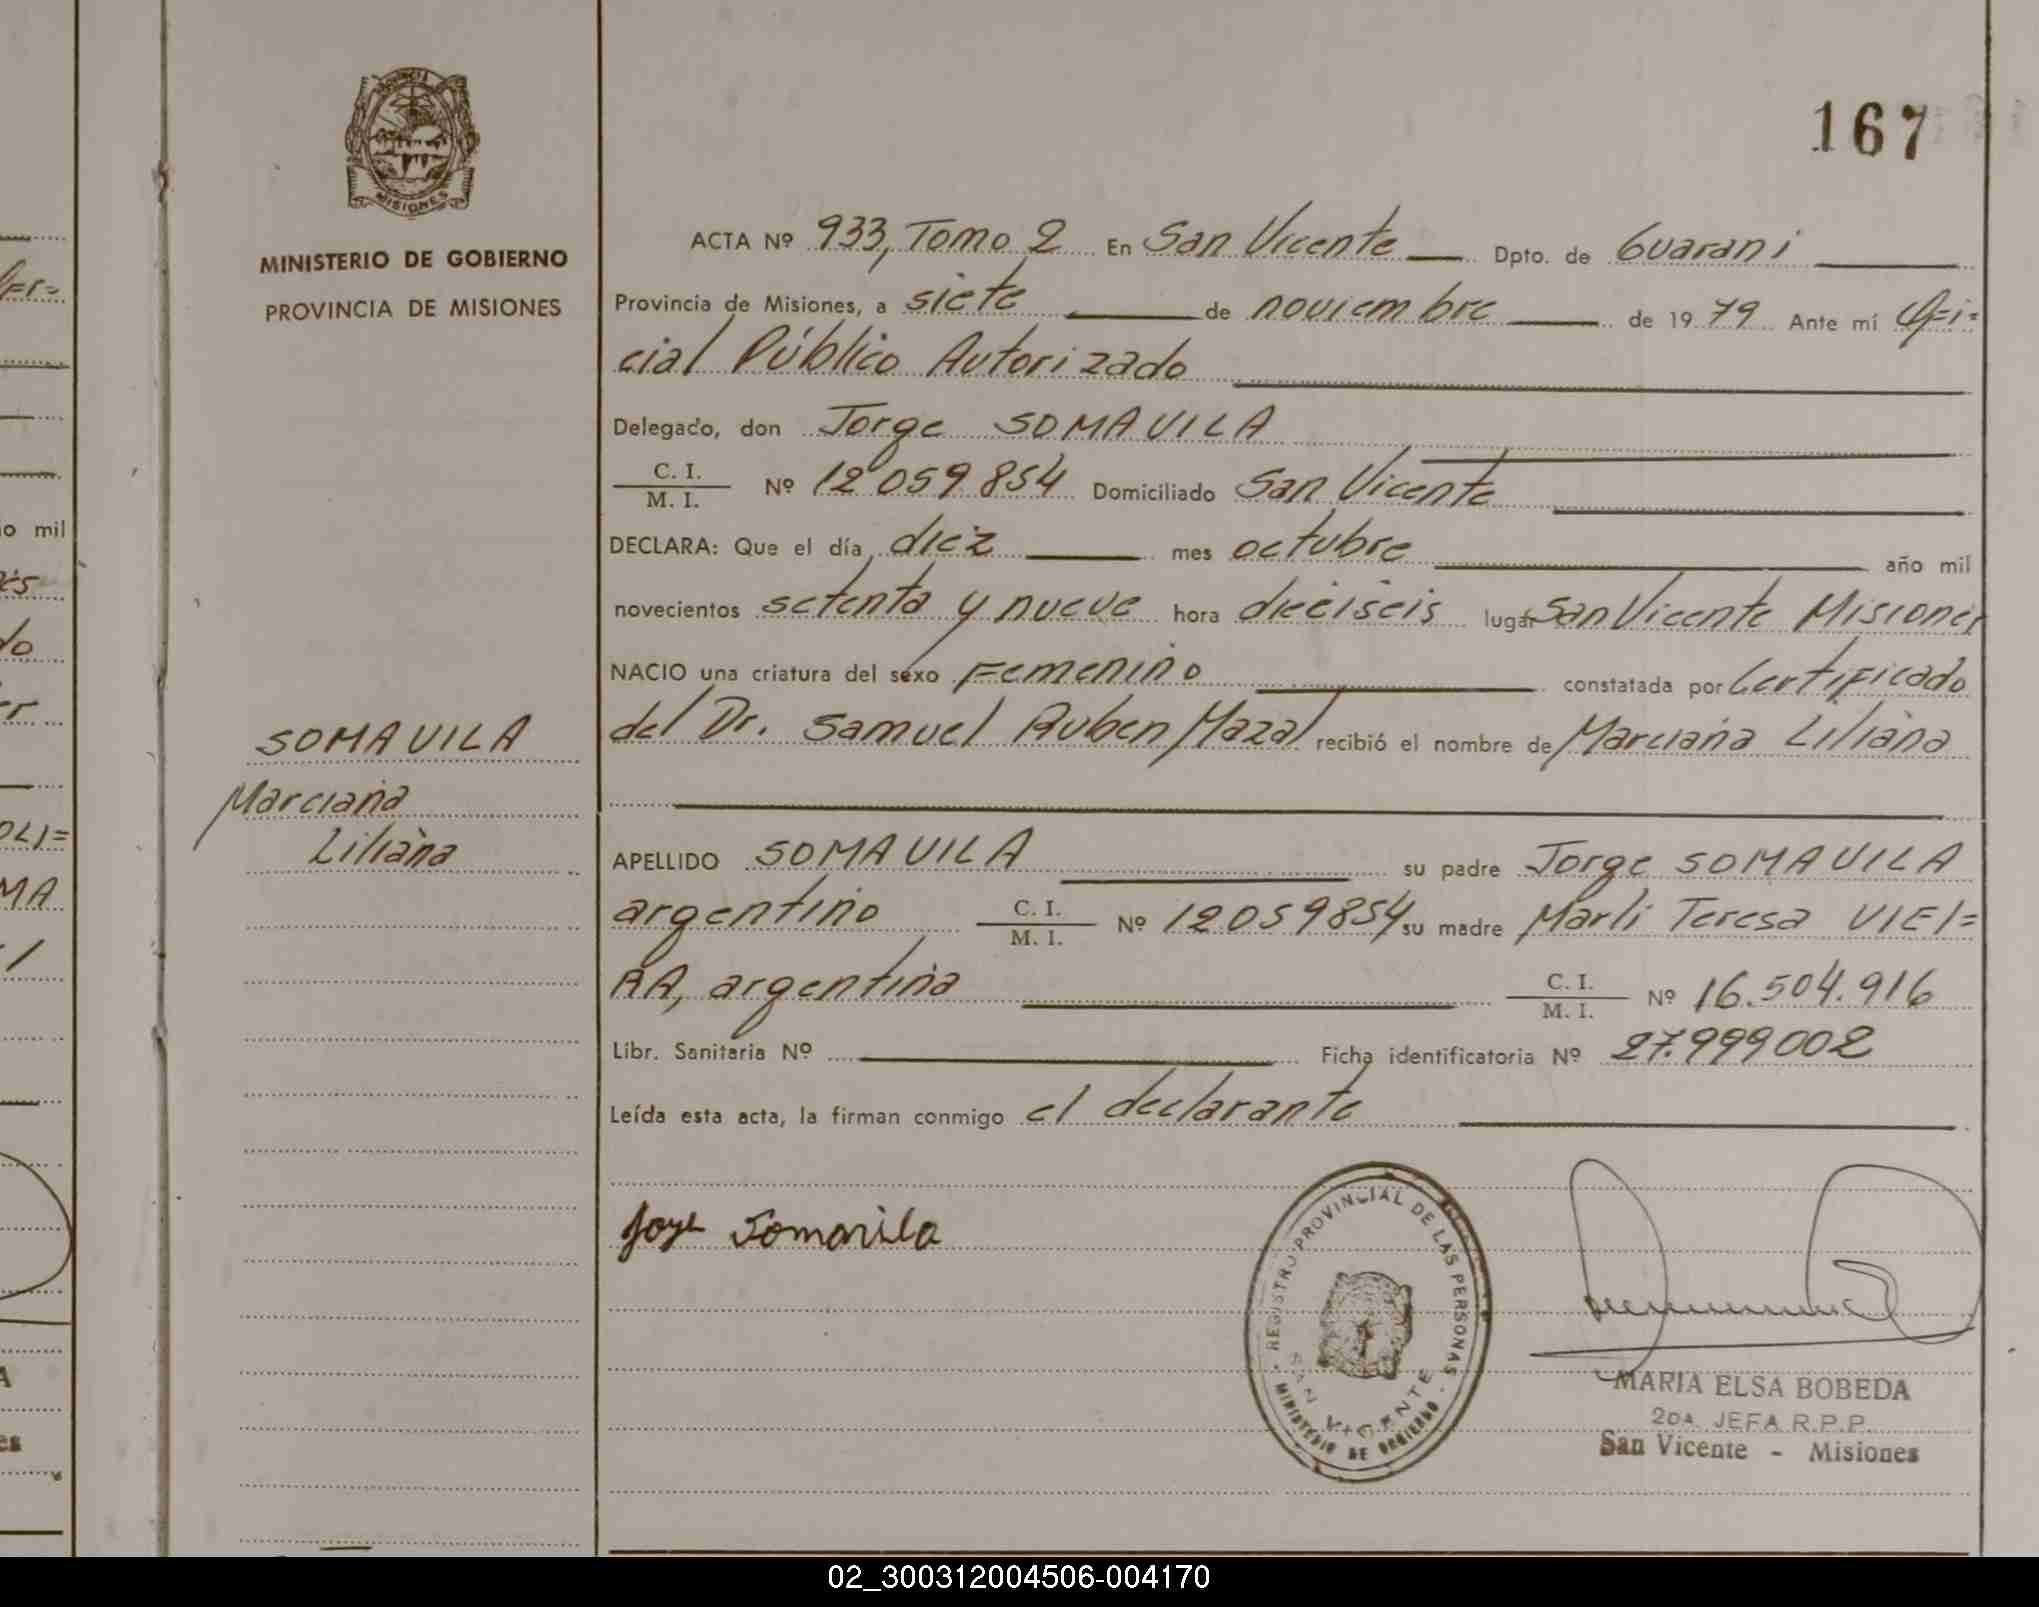 167
PROVINCIA
MISIONES
MINISTERIO DE GOBIERNO
PROVINCIA DE MISIONES
SOMAVILA
Marciana
Liliana
ACTA Nº 933, Tomo 2 En San Vicente Dpto. de Guarani
Provincia de Misiones, a siete de noviembre de 1979 Ante mí Ofi=
cial Público Autorizado
Delegado, don Jorge SOMAVILA
C. I.
M. I. Nº 12 059 854 Domiciliado San Vicente
DECLARA: Que el día diez mes octubre año mil
novecientos setenta y nueve hora dieciseis lugar San Vicente Misiones
NACIO una criatura del sexo Femenino constatada por Certificado
del Dr. Samuel Ruben Mazal recibió el nombre de Marciana Liliana
APELLIDO SOMAVILA su padre Jorge SOMAVILA
argentino C. I.
M. I. Nº 12059854 su madre Marli Teresa VIEI=
RA, argentina C. I.
M. I. Nº 16.504.916
Libr. Sanitaria Nº Ficha identificatoria Nº 27.999002
Leída esta acta, la firman conmigo el declarante
Jorge Somavila
REGISTRO PROVINCIAL DE LAS PERSONAS
SAN VICENTE
MINISTERIO DE GOBIERNO
MARIA ELSA BOBEDA
2DA. JEFA R.P.P.
San Vicente - Misiones
o mil
02_300312004506-004170